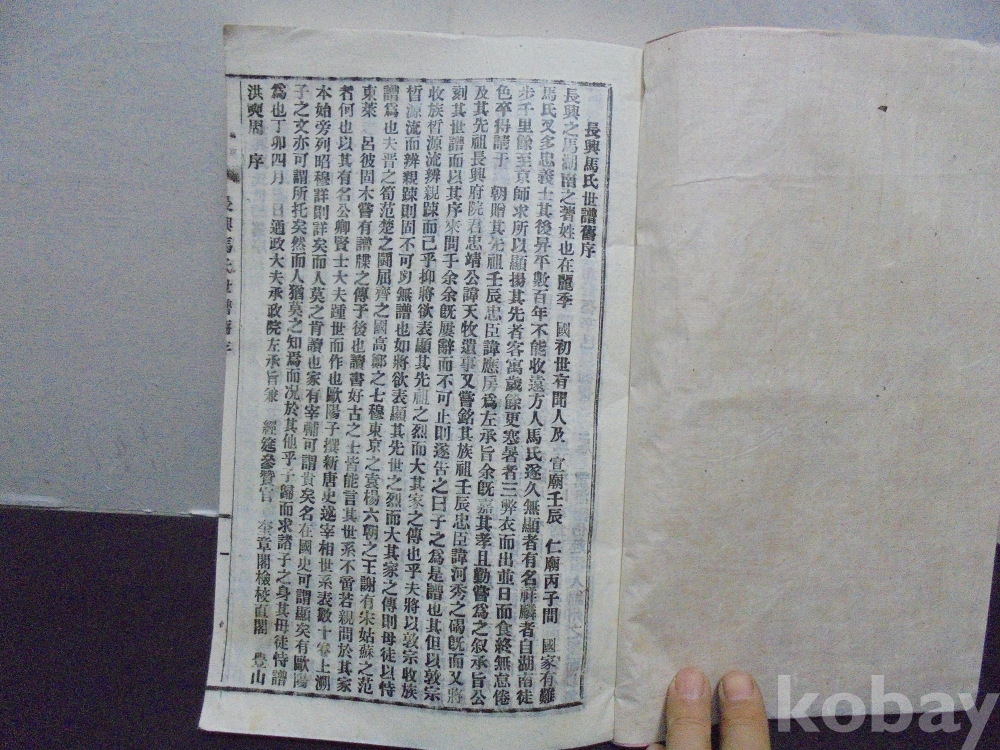 長興馬氏世譜舊序
長興之馬湖南之著姓也在麗季 國初世有聞人及 宣廟壬辰 仁廟丙子間 國家有難
馬氏又多忠義士其後昇平數百年不能收遠方人馬氏遂久無顯者有名祥麟者自湖南徒
步千里餘至京師求所以顯揚其先者客寓歲餘更寒暑者三弊衣而出並日而食終無怠倦
色卒得請于 朝贈其先祖壬辰忠臣諱應房爲左承旨余旣嘉其孝且勤嘗爲之叙承旨公
及其先祖長興府院君忠靖公諱天牧遺事又嘗銘其族祖壬辰忠臣諱河秀之碣旣而又將
刻其世譜而以其序來問于余余旣屢辭而不可止則遂告之曰子之爲是譜也其但以敦宗
收族晳源流辨親踈而已乎抑將欲表顯其先祖之烈而大其家之傳也乎夫將以敦宗收族
晳源流而辨親踈則固不可無譜也如將欲表顯其先世之烈而大其家之傳則毋徒以恃
譜爲也夫晋之筍范楚之鬪屈齊之國高鄭之七穆東京之袁楊六朝之王謝有宋姑蘇之范
東萊 呂彼固木嘗有譜牒之傳予後也讀書好古之士皆能言其世系不啻若親間於其家
者何也以其有名公卿賢士大夫踵世而作也歐陽子撰新唐史述宰相世系表數十卷上溯
本始旁列昭穆詳則詳矣而人莫之肯讀也家有宰輔可謂貴矣名在國史可謂顯矣有歐陽
子之文亦可謂所托矣然而人猶莫之知爲而况於其他乎子歸而求諸子之身其毋徒恃譜
爲也丁卯四月 日通政大夫承政院左承旨兼 經筵參贊官 奎章閣檢校直閣 豊山
洪奭周 序
長興馬氏世譜舊序
kobay